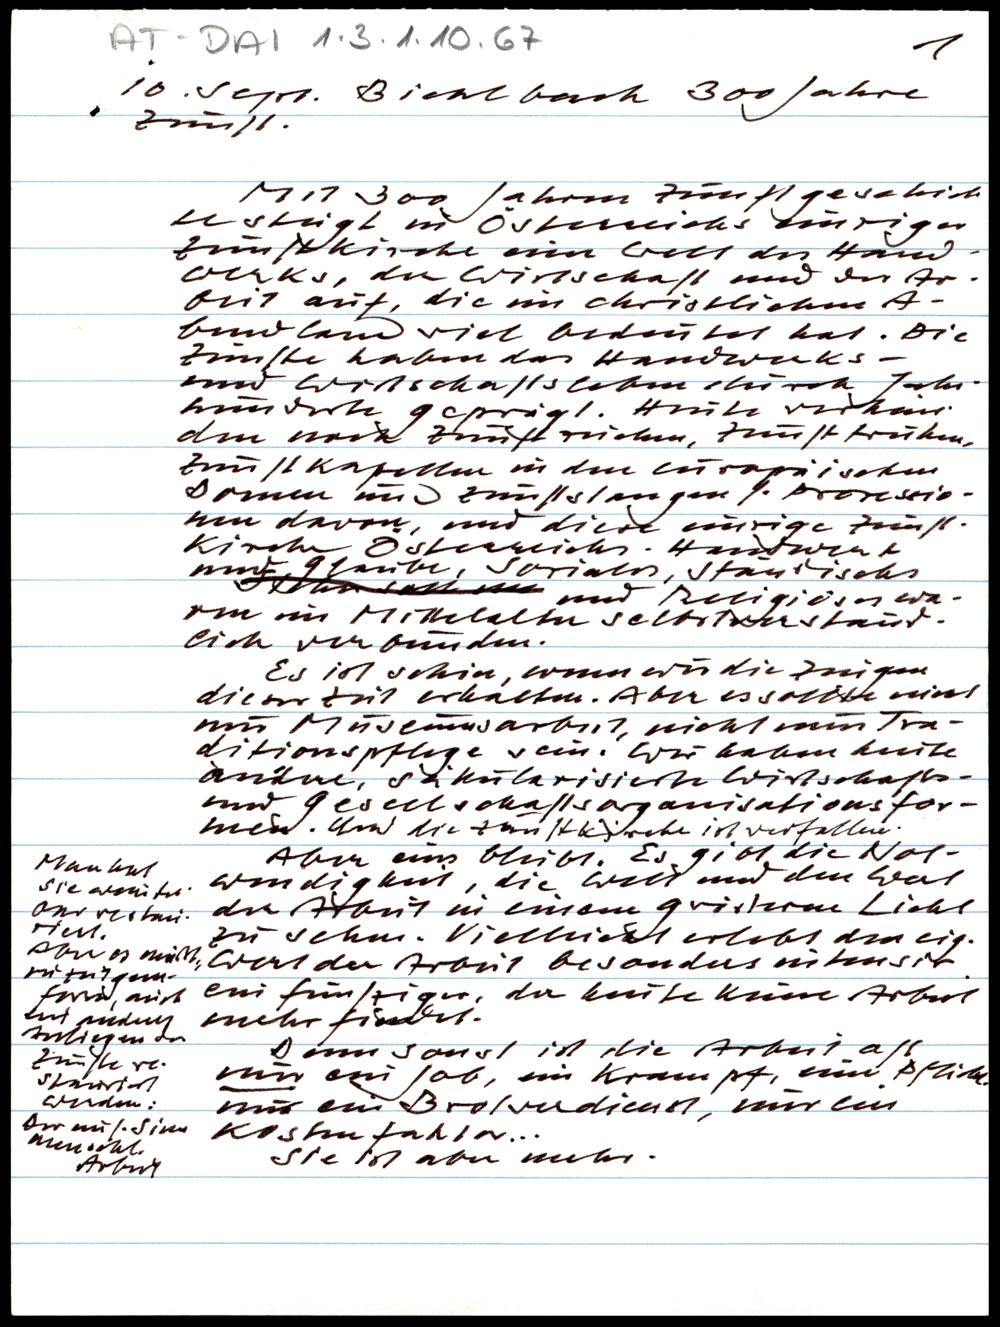 AT-DAI 1.3.1.10.67
1
10. Sept. Bichlbach 300 Jahre
Zunft.
Mit 300 Jahren Zunftgeschich
te steigt in Österreichs einziger
Zunftkirche eine Welt des Hand-
werks, der Wirtschaft und der Ar-
beit auf, die im christlichen A-
bendland viel bedeutet hat. Die
Zünfte haben das Handwerks-
und Wirtschaftsleben durch Jahr-
hunderte geprägt. Heute verkün-
den noch Zunftzeichen, Zunfttruhen,
Zunftkapellen in den europäischen
Domen und Zunftstangen f. Prozessio-
nen davon, und diese einzige Zunft-
kirche Österreichs. Handwerk
und Glaube, Soziales, Ständisches
und Religiöses wa-
ren im Mittelalter selbstverständ-
lich verbunden.
Es ist schön, wenn wir die Zeugen
dieser Zeit erhalten. Aber es sollte nicht
nur Museumsarbeit, nicht nur Tra-
ditionspflege sein. Wir haben heute
andere, säkularisierte Wirtschafts-
und Gesellschaftsorganisationsfor-
men. Und die Zunftkirche ist verfallen.
Aber eins bleibt. Es gibt die Not-
wendigkeit, die Welt und den Wert
der Arbeit in einem größeren Licht
zu sehen. Vielleicht erlebt den eig.
Wert der Arbeit besonders intensiv
ein fünfziger, der heute keine Arbeit
mehr findet.
Denn sonst ist die Arbeit oft
nur ein Job, ein Krampf, eine Pflicht
nur ein Brotverdienst, nur ein
Kostenfaktor...
Sie ist aber mehr.
Man hat
sie wunder-
bar restau-
riert.
Aber es müßte,
in zeitgem.
Form, auch
ein anderes
Anliegen der
Zünfte re-
stauriert
werden:
Der tiefe Sinn
menschl.
Arbeit